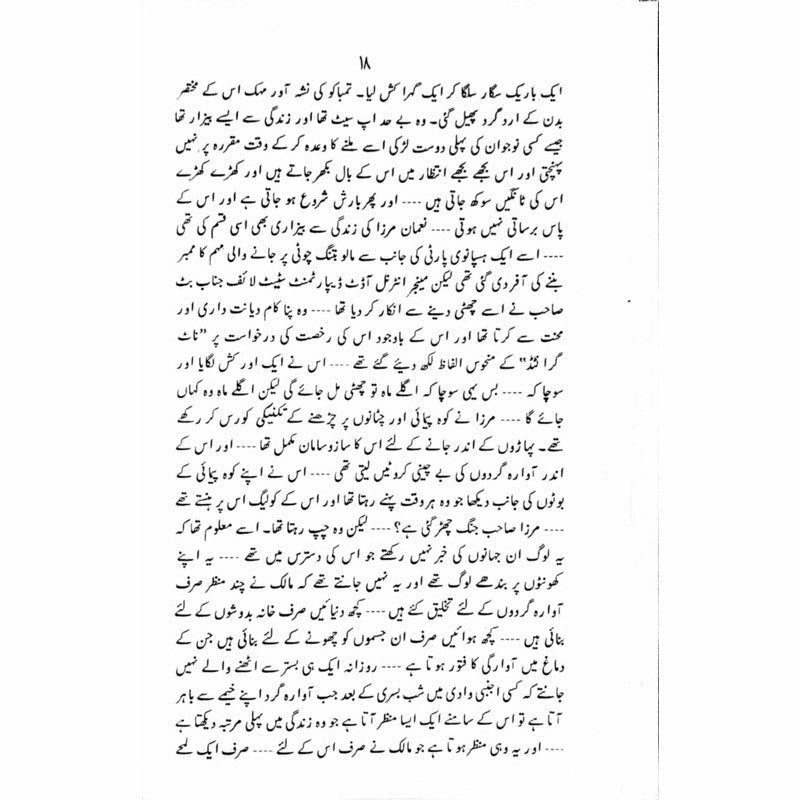 ۱۸
ایک باریک سگار سلگا کر ایک گہرا کش لیا۔ تمباکو کی نشہ آور مہک اس کے مختصر
بدن کے ارد گرد پھیل گئی۔ وہ بے حد اپ سیٹ تھا اور زندگی سے ایسے بیزار تھا
جیسے کسی نوجوان کی پہلی دوست لڑکی اسے ملنے کا وعدہ کر کے وقت مقررہ پر نہیں
پہنچتی اور اس بجھے بجھے انتظار میں اس کے بال بکھر جاتے ہیں اور کھڑے کھڑے
اس کی ٹانگیں سوکھ جاتی ہیں ---- اور پھر بارش شروع ہو جاتی ہے اور اس کے
پاس برساتی نہیں ہوتی ---- نعمان مرزا کی زندگی سے بیزاری بھی اسی قسم کی تھی
---- اسے ایک ہسپانوی پارٹی کی جانب سے مالو بتنگ چوٹی پر جانے والی مہم کا ممبر
بننے کی آفر دی گئی تھی لیکن مینجر انٹرنل آڈٹ ڈیپارٹمنٹ سٹیٹ لائف جناب بٹ
صاحب نے اسے چھٹی دینے سے انکار کر دیا تھا ---- وہ پنا کام دیانت داری اور
محنت سے کرتا تھا اور اس کے باوجود اس کی رخصت کی درخواست پر ”ناٹ
گرانٹڈ“ کے منحوس الفاظ لکھ دیئے گئے تھے ---- اس نے ایک اور کش لگایا اور
سوچا کہ ---- بس یہی سوچا کہ اگلے ماہ تو چھٹی مل جائے گی لیکن اگلے ماہ وہ کہاں
جائے گا ---- مرزا نے کوہ پیمائی اور چٹانوں پر چڑھنے کے تکنیکی کورس کر رکھے
تھے۔ پہاڑوں کے اندر جانے کے لئے اس کا سازوسامان مکمل تھا ---- اور اس کے
اندر آوارہ گردوں کی بے چینی کروٹیں لیتی تھی ---- اس نے اپنے کوہ پیمائی کے
بوٹوں کی جانب دیکھا جو وہ ہر وقت پہنے رہتا تھا اور اس کے کولیگ اس پر ہنستے تھے
---- مرزا صاحب جنگ چھڑ گئی ہے؟ ---- لیکن وہ چپ رہتا تھا۔ اسے معلوم تھا کہ
یہ لوگ ان جہانوں کی خبر نہیں رکھتے جو اس کی دسترس میں تھے ---- یہ اپنے
کھونٹوں پر بندھے لوگ تھے اور یہ نہیں جانتے تھے کہ مالک نے چند منظر صرف
آوارہ گردوں کے لئے تخلیق کئے ہیں ---- کچھ دنیائیں صرف خانہ بدوشوں کے لئے
بنائی ہیں ---- کچھ ہوائیں صرف ان جسموں کو چھونے کے لئے بنائی ہیں جن کے
دماغ میں آوارگی کا فتور ہوتا ہے ---- روزانہ ایک ہی بستر سے اٹھنے والے نہیں
جانتے کہ کسی اجنبی وادی میں شب بسری کے بعد جب آوارہ گرد اپنے خیمے سے باہر
آتا ہے تو اس کے سامنے ایک ایسا منظر آتا ہے جو وہ زندگی میں پہلی مرتبہ دیکھتا ہے
---- اور یہ وہی منظر ہوتا ہے جو مالک نے صرف اس کے لئے ---- صرف ایک لمحے